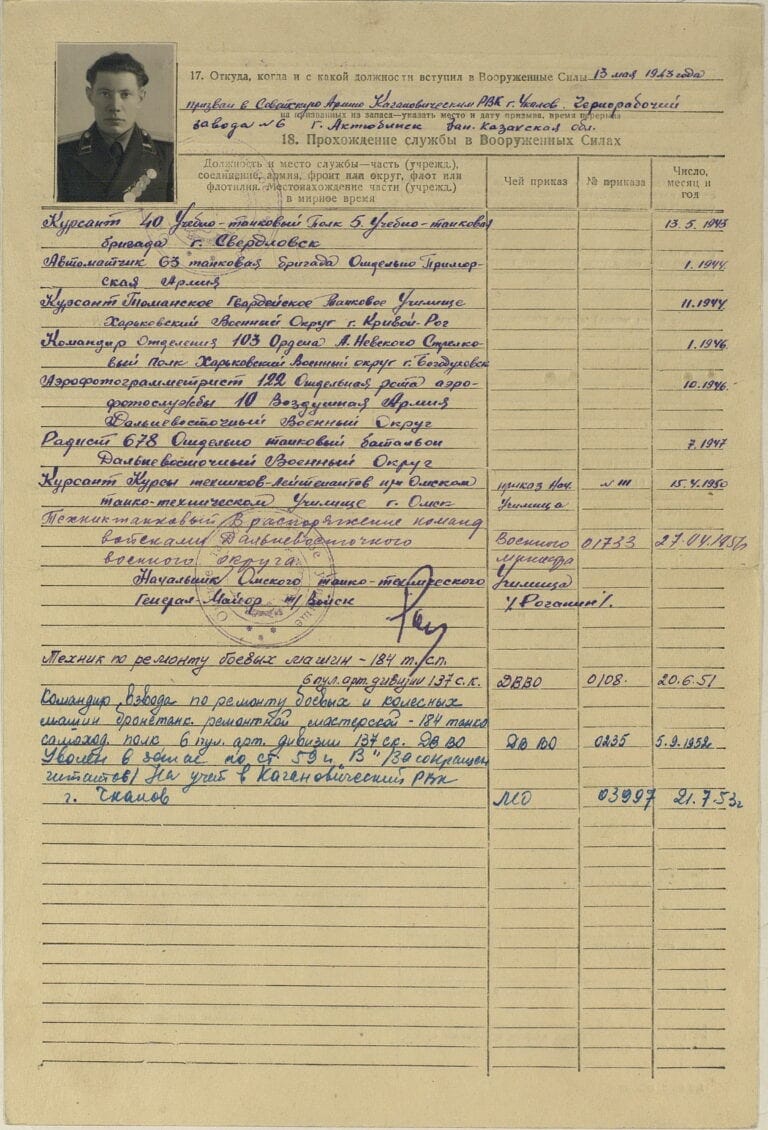 17. Откуда, когда и с какой должности вступил в Вооруженные Силы 13 мая 1943 года
призван в Советскую Армию Кагановическим РВК г. Чкалов. Чернорабочий
на призванных из запаса—указать место и дату призыва, время перерыва
завода №6 г. Актюбинск Зап. Казахская обл.
18. Прохождение службы в Вооруженных Силах
Должность и место службы—часть (учрежд.), соединение, армия, фронт или округ, флот или флотилия. Местонахождение части (учрежд.) в мирное время
Чей приказ
№ приказа
Число, месяц и год
Курсант 40 Учебно-танковый Полк 5. Учебно-танковая 13.5.1943
бригада г. Свердловск
Автоматчик 63 танковая бригада Отдельно Примор- 1.1944
ская Армия
Курсант Тюманское Гвардейское Танковое Училище 11.1944
Харьковский Военный Округ г. Кривой-Рог
Командир Отделения 103 Ордена А. Невского Стрелко- 1.1946
вый полк Харьковский Военный округ г. Богодуховск
Аэрофотограмметрист 122 Отдельная рота аэро- 10.1946.
фотослужбы 10 Воздушная Армия
Дальневосточный Военный Округ
Радист 678 Отдельно танковый батальон 7.1947
Дальневосточный Военный Округ
Курсант Курсы техников-лейтенантов при Омском приказ Нач. № 111 15.4.1950
танко-техническом Училище г. Омск Училища
Техник танковый В распоряжение команд Военного 01733
войсками Дальневосточного министра
военного округа
Начальник Омского танко-технического Училища
Генерал-Майор т/Войск /Роганин/.
Техник по ремонту боевых машин - 184 т.сп.
6 пул. арт. дивизии 137 с.к. ДВВО 0108. 20.6.51
Командир взвода по ремонту боевых и колесных
машин бронетанк. ремонтной мастерской - 184 танко
самоход. полк 6 пул. арт. дивизии 137 ск. ДВВО ДВВО 0235 5.9.1952г
Уволен в запас по ст 59 п. "В" /За сокращен
штатов/ На учет в Кагановический РВК
г. Чкалов МО 03997 21.7.53г